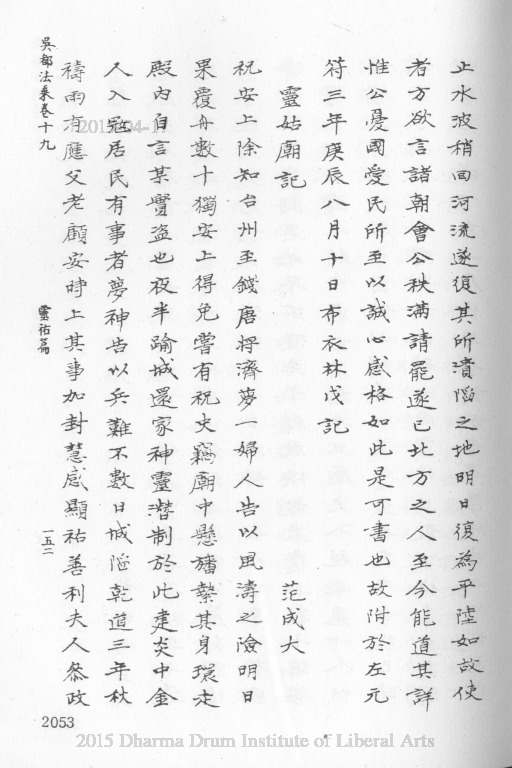 止水波稍囬河流遂復其所潰陷之地明日復為平陸如故使
者方欲言諸朝會公秩滿請罷遂已此方之人至今能道其詳
惟公憂國愛民所至以誠心感格如此是可書也故附於左元
符三年庚辰八月十日布衣林戊記
靈姑廟記 范成大
祝安上除知台州至錢唐將濟夢一婦人告以風濤之險明日
果覆舟數十獨安上得免嘗有祝史竊廟中懸旛縶其身環走
殿內自言某實盜也夜半踰城還家神靈潛制於此建炎中金
人入寇居民有事者夢神告以兵難不數日城陷乾道三年秋
禱雨有應父老顧安時上其事加封慧感顯祐善利夫人叅政
吳都法乘卷十九 靈祐篇 一五二
2053
2015 Dharma Drum Institute of Liberal Arts